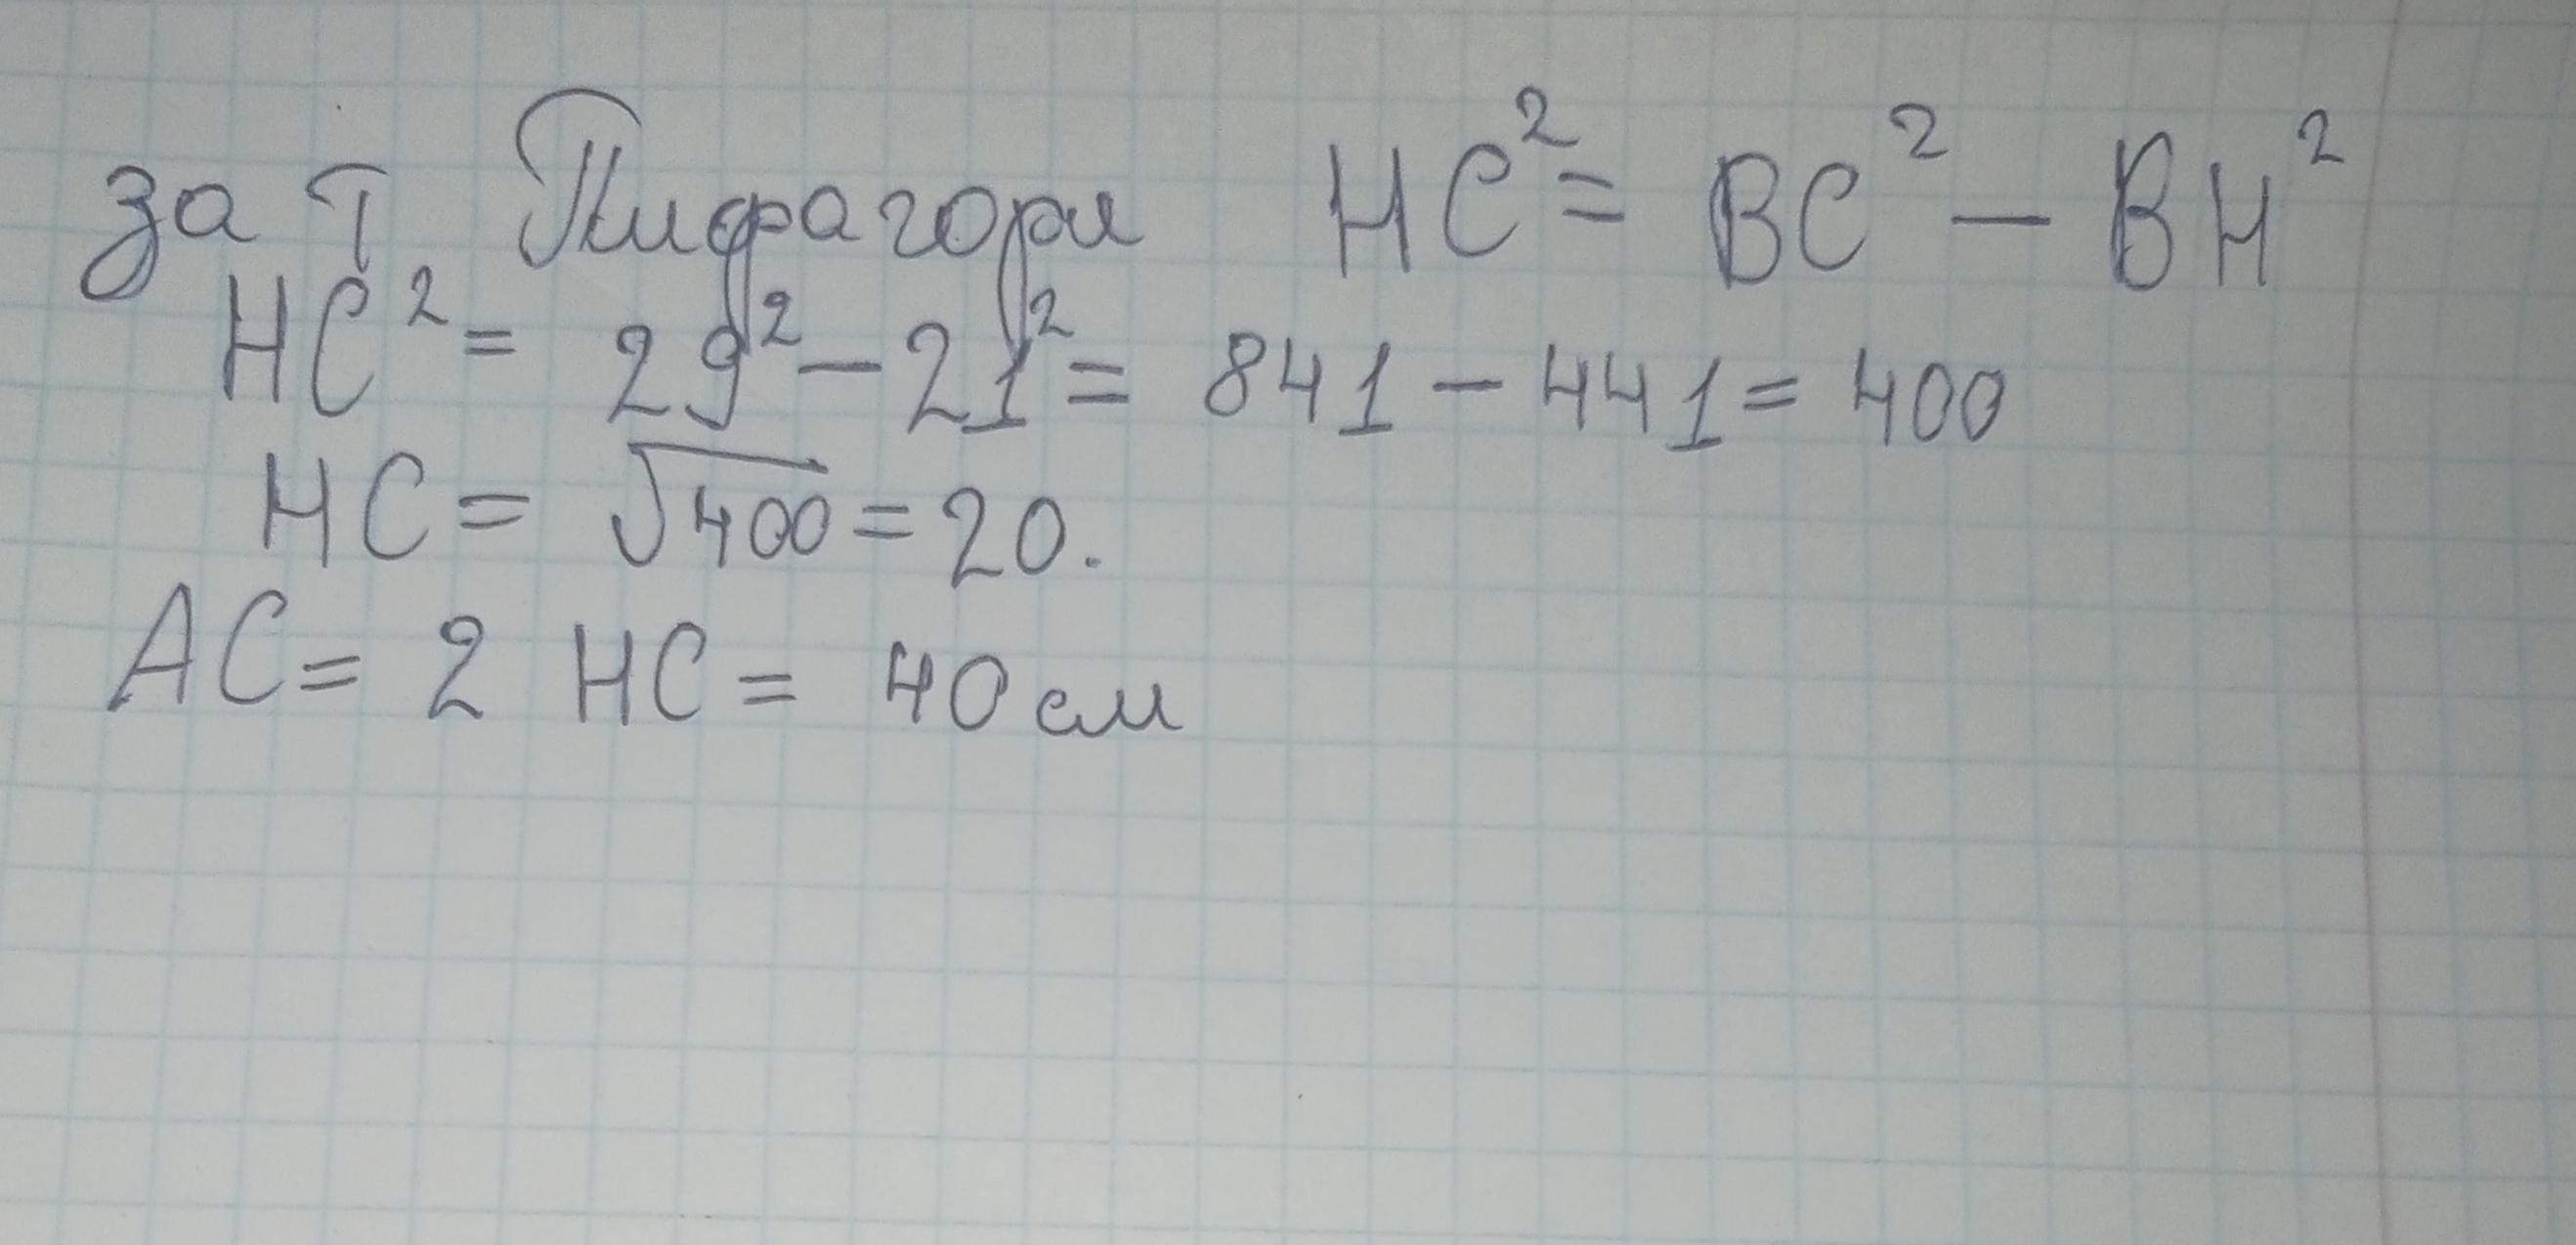 за т Пифагора HC² = BC² - BH²
HC² = 29² - 21² = 841 - 441 = 400
HC = √400 = 20.
AC = 2 HC = 40 см